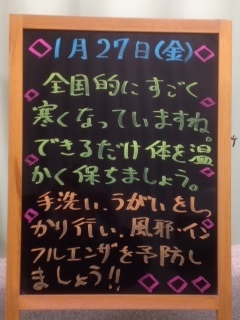 1月27日(金)
全国的にすごく
寒くなっていますね。
できるだけ体を温
かく保ちましょう。
手洗い、うがいをし
かり行い、風邪・イン
フルエンザを予防し
ましょう!!